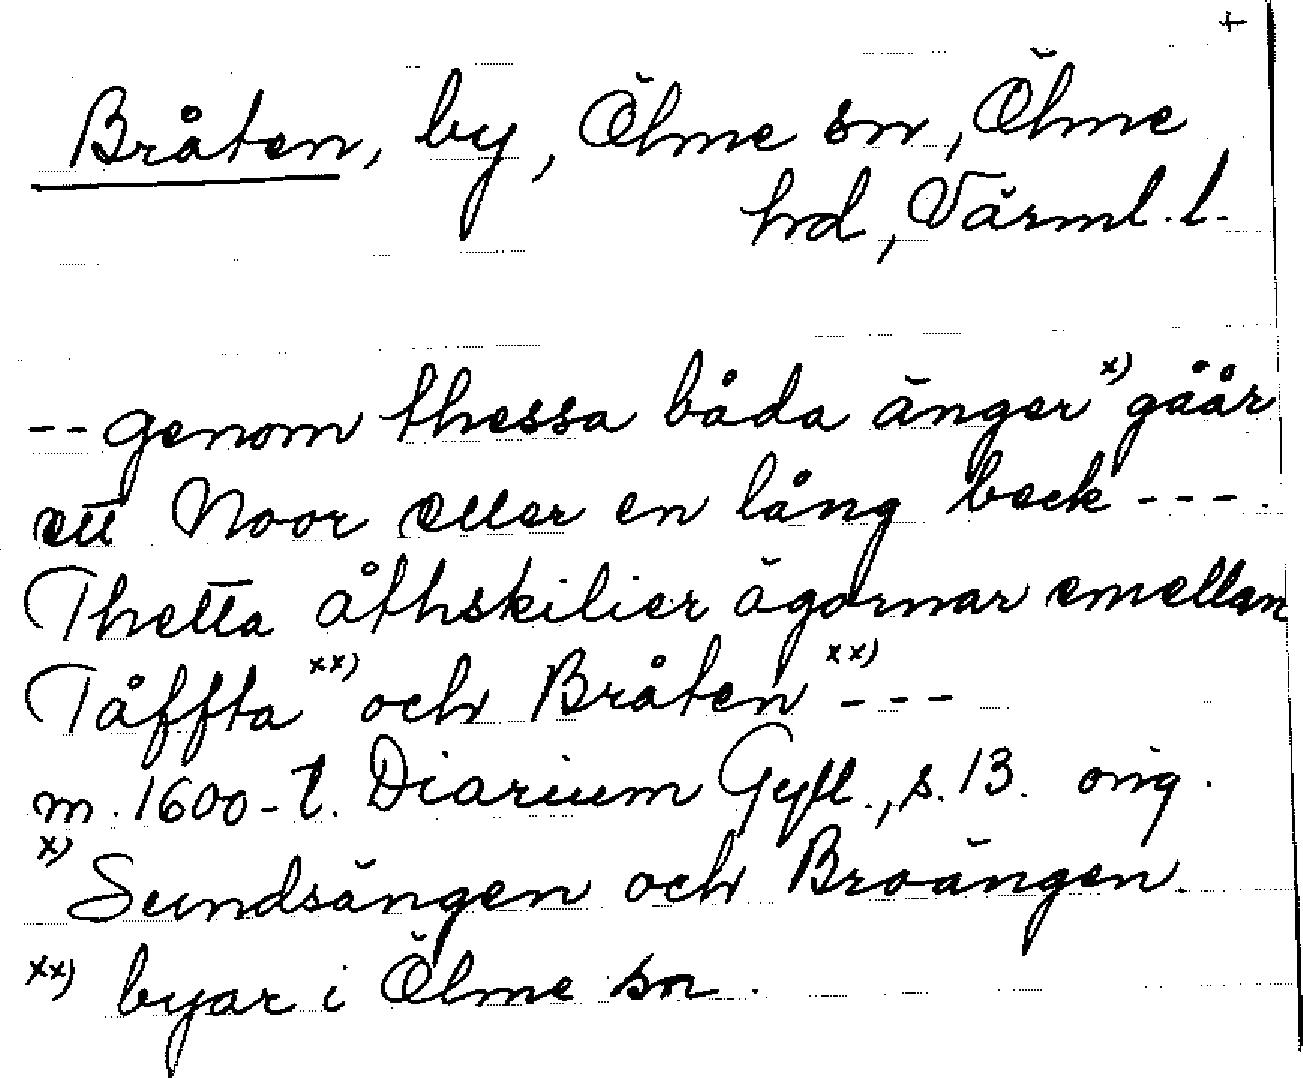 +
Bråten, by, Ölme sn, Ölme
hd, Värml. l.
-- genom thessa båda änger x) gåår
ett Noor eller en lång beck ---.
Thetta åthskilier ägornar emellan
Tåffta xx) och Bråten xx) ---
m. 1600-t. Diarium Gyll., s. 13. orig.
x) Sundsängen och Broängen.
xx) byar i Ölme sn.